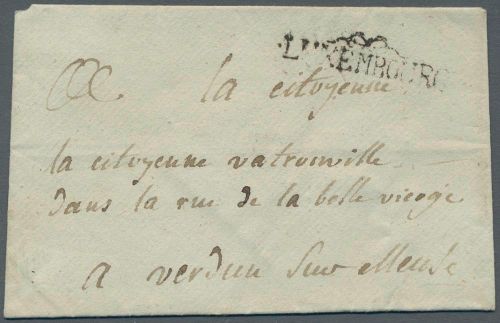 LUXEMBOURG
la citoyenne
la citoyenne vatronville
dans la rue de la belle vierge
a verdun sur Meuse